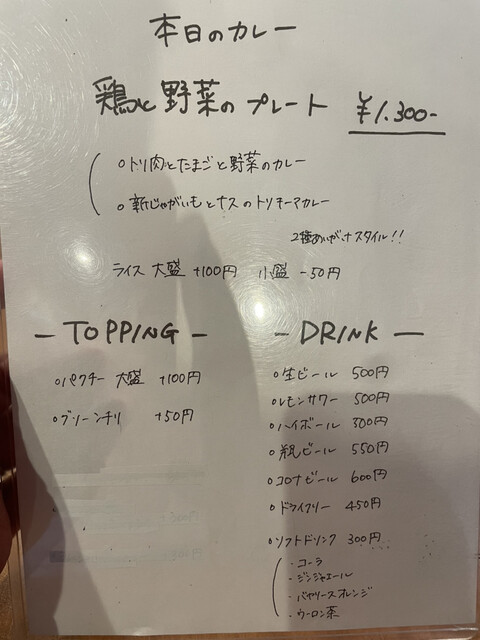 本日のカレー
鶏と野菜のプレート ¥1.300-
○トリ肉とたまごと野菜のカレー
○新じゃがいもとナスのトリキーマカレー
2種あいがけスタイル!!
ライス 大盛 +100円 小盛 -50円
- TOPPING -
○パクチー 大盛 +100円
○グリーンチリ +50円
- DRINK -
○生ビール 500円
○レモンサワー 500円
○ハイボール 500円
○瓶ビール 550円
○コロナビール 600円
○ドライフリー 450円
○ソフトドリンク 300円
・コーラ
・ジンジャエール
・バヤリースオレンジ
・ウーロン茶